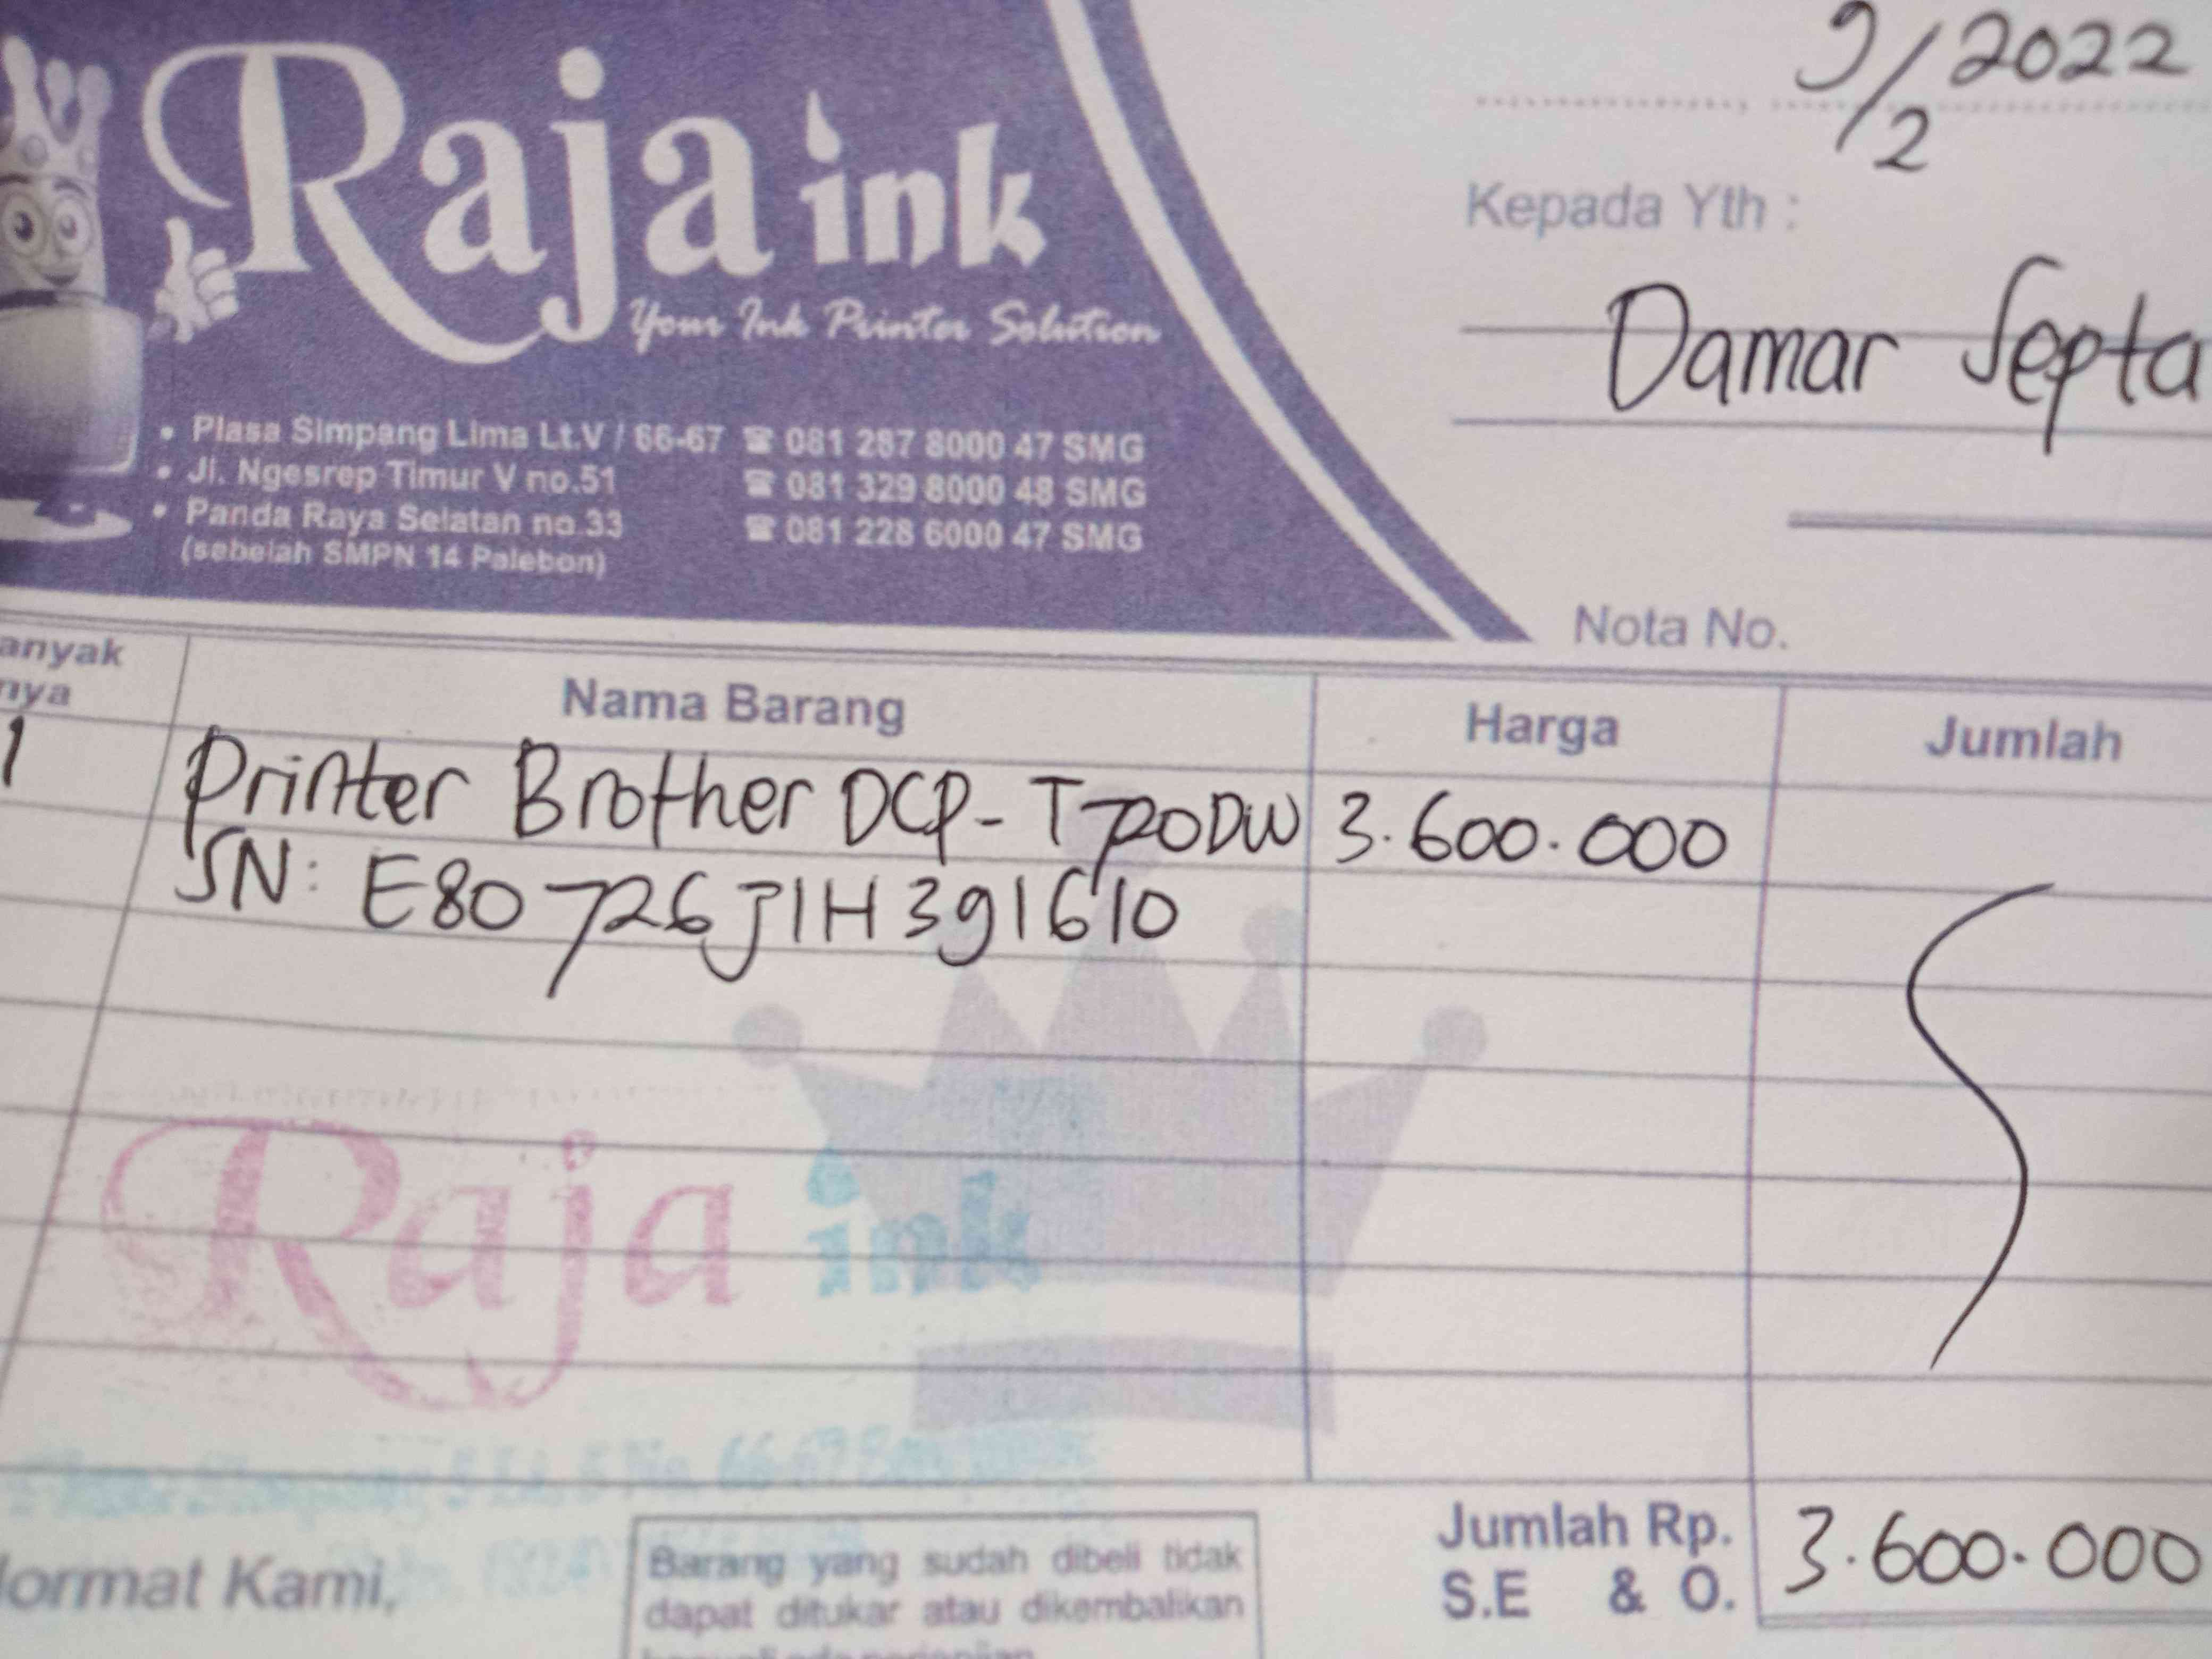 Raja ink
Your Ink Printer Solution
• Plasa Simpang Lima Lt.V / 66-67 ☎ 081 287 8000 47 SMG
• Jl. Ngesrep Timur V no.51 ☎ 081 329 8000 48 SMG
• Panda Raya Selatan no.33 ☎ 081 228 6000 47 SMG
(sebelah SMPN 14 Palebon)
9/2 2022
Kepada Yth :
Damar Septa
Nota No.
anyak
nya
Nama Barang
Harga
Jumlah
1 Printer Brother DCP-T720DW 3.600.000
SN: E80726J1H391610
Raja ink
Jumlah Rp. 3.600.000
S.E & O.
ormat Kami,
Barang yang sudah dibeli tidak
dapat ditukar atau dikembalikan